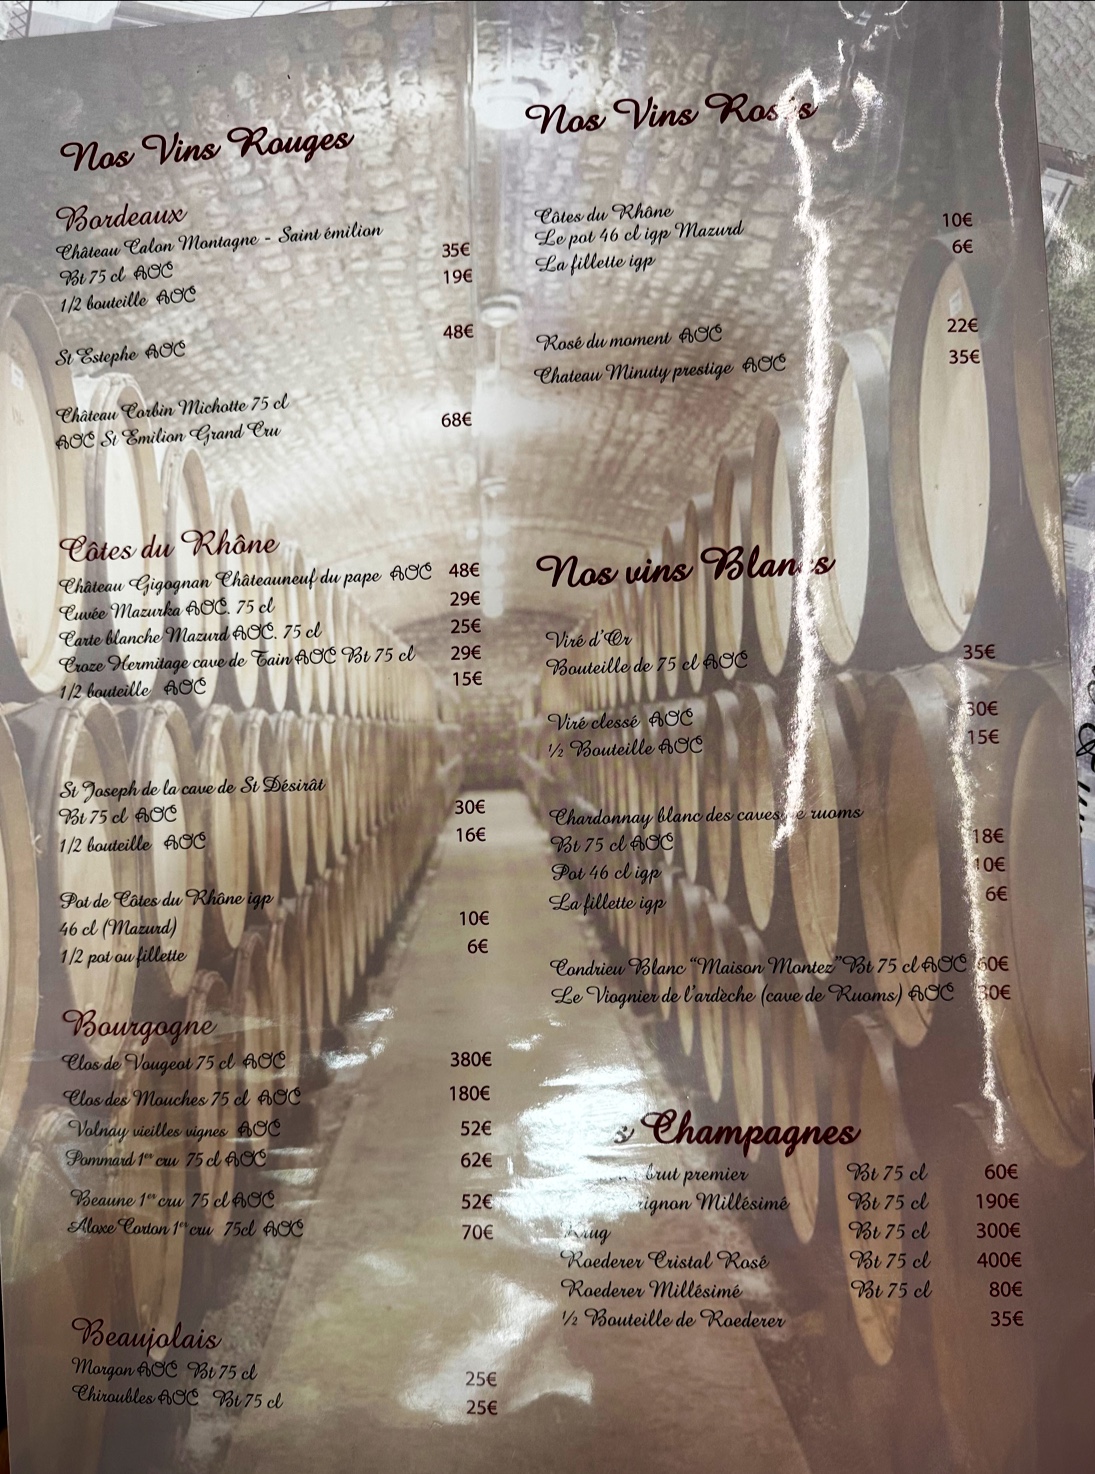 Nos Vins Rouges
Bordeaux
Château Calon Montagne - Saint émilion
Bt 75 cl AOC 35€
1/2 bouteille AOC 19€
St Estephe AOC 48€
Château Corbin Michotte 75 cl
AOC St Emilion Grand Cru 68€
Côtes du Rhône
Château Gigognan Châteauneuf du pape AOC 48€
Cuvée Mazurka AOC. 75 cl 29€
Carte blanche Mazurd AOC. 75 cl 25€
Croze Hermitage cave de Tain AOC Bt 75 cl 29€
1/2 bouteille AOC 15€
St Joseph de la cave de St Désirât
Bt 75 cl AOC 30€
1/2 bouteille AOC 16€
Pot de Côtes du Rhône igp
46 cl (Mazurd) 10€
1/2 pot ou fillette 6€
Bourgogne
Clos de Vougeot 75 cl AOC 380€
Clos des Mouches 75 cl AOC 180€
Volnay vieilles vignes AOC 52€
Pommard 1er cru 75 cl AOC 62€
Beaune 1er cru 75 cl AOC 52€
Aloxe Corton 1er cru 75cl AOC 70€
Beaujolais
Morgon AOC Bt 75 cl 25€
Chiroubles AOC Bt 75 cl 25€
Nos Vins Rosés
Côtes du Rhône
Le pot 46 cl igp Mazurd 10€
La fillette igp 6€
Rosé du moment AOC 22€
Chateau Minuty prestige AOC 35€
Nos vins Blancs
Viré d'Or
Bouteille de 75 cl AOC 35€
Viré clessé AOC 30€
½ Bouteille AOC 15€
Chardonnay blanc des caves de ruoms
Bt 75 cl AOC 18€
Pot 46 cl igp 10€
La fillette igp 6€
Condrieu Blanc "Maison Montez" Bt 75 cl AOC 60€
Le Viognier de l'ardèche (cave de Ruoms) AOC 30€
Champagnes
brut premier Bt 75 cl 60€
Millésimé Bt 75 cl 190€
Krug Bt 75 cl 300€
Roederer Cristal Rosé Bt 75 cl 400€
Roederer Millésimé Bt 75 cl 80€
½ Bouteille de Roederer 35€